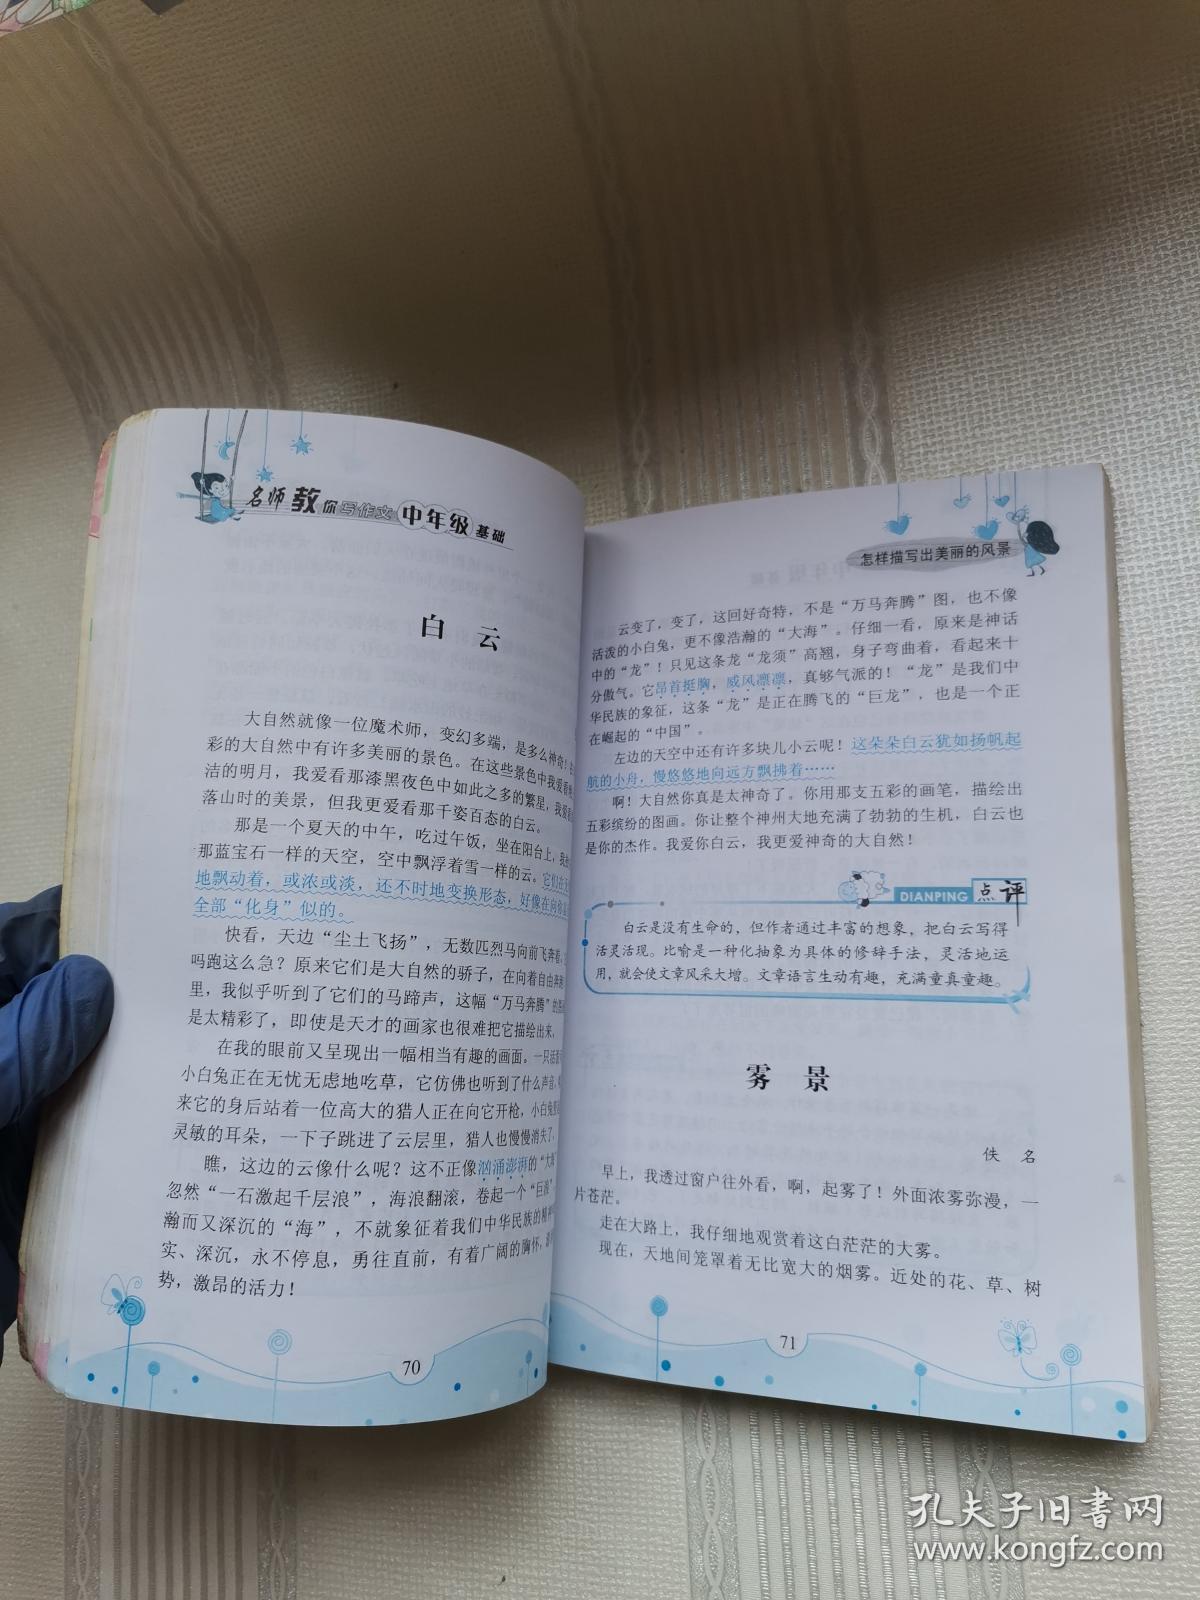 名师教你写作文中年级基础
白云
大自然就像一位魔术师，变幻多端，是多么神奇！
彩的大自然中有许多美丽的景色。在这些景色中我爱看
洁的明月，我爱看那漆黑夜色中如此之多的繁星，我爱看
落山时的美景，但我更爱看那千姿百态的白云。
那是一个夏天的中午，吃过午饭，坐在阳台上，我
那蓝宝石一样的天空，空中飘浮着雪一样的云。它们在
地飘动着，或浓或淡，还不时地变换形态，好像在向
全部“化身”似的。
快看，天边“尘土飞扬”，无数匹烈马向前飞奔着，
吗跑这么急？原来它们是大自然的骄子，在向着自由奔
里，我似乎听到了它们的马蹄声，这幅“万马奔腾”的
是太精彩了，即使是天才的画家也很难把它描绘出来，
在我的眼前又呈现出一幅相当有趣的画面。一只活
小白兔正在无忧无虑地吃草，它仿佛也听到了什么声音，
来它的身后站着一位高大的猎人正在向它开枪，小白兔
灵敏的耳朵，一下子跳进了云层里，猎人也慢慢消失了，
瞧，这边的云像什么呢？这不正像汹涌澎湃的“大
忽然“一石激起千层浪”，海浪翻滚，卷起一个“巨浪”
瀚而又深沉的“海”，不就象征着我们中华民族的精神
实、深沉，永不停息，勇往直前，有着广阔的胸怀，
势，激昂的活力！
70
怎样描写出美丽的风景
云变了，变了，这回好奇特，不是“万马奔腾”图，也不像
活泼的小白兔，更不像浩瀚的“大海”。仔细一看，原来是神话
中的“龙”！只见这条龙“龙须”高翘，身子弯曲着，看起来十
分傲气。它昂首挺胸，威风凛凛，真够气派的！“龙”是我们中
华民族的象征，这条“龙”是正在腾飞的“巨龙”，也是一个正
在崛起的“中国”。
左边的天空中还有许多块儿小云呢！这朵朵白云犹如扬帆起
航的小舟，慢悠悠地向远方飘拂着……
啊！大自然你真是太神奇了。你用那支五彩的画笔，描绘出
五彩缤纷的图画。你让整个神州大地充满了勃勃的生机，白云也
是你的杰作。我爱你白云，我更爱神奇的大自然！
DIANPING 点评
白云是没有生命的，但作者通过丰富的想象，把白云写得
活灵活现。比喻是一种化抽象为具体的修辞手法，灵活地运
用，就会使文章风采大增。文章语言生动有趣，充满童真童趣。
雾景
佚名
早上，我透过窗户往外看，啊，起雾了！外面浓雾弥漫，一
片苍茫。
走在大路上，我仔细地观赏着这白茫茫的大雾。
现在，天地间笼罩着无比宽大的烟雾。近处的花、草、树
71
孔夫子旧书网
www.kongfz.com